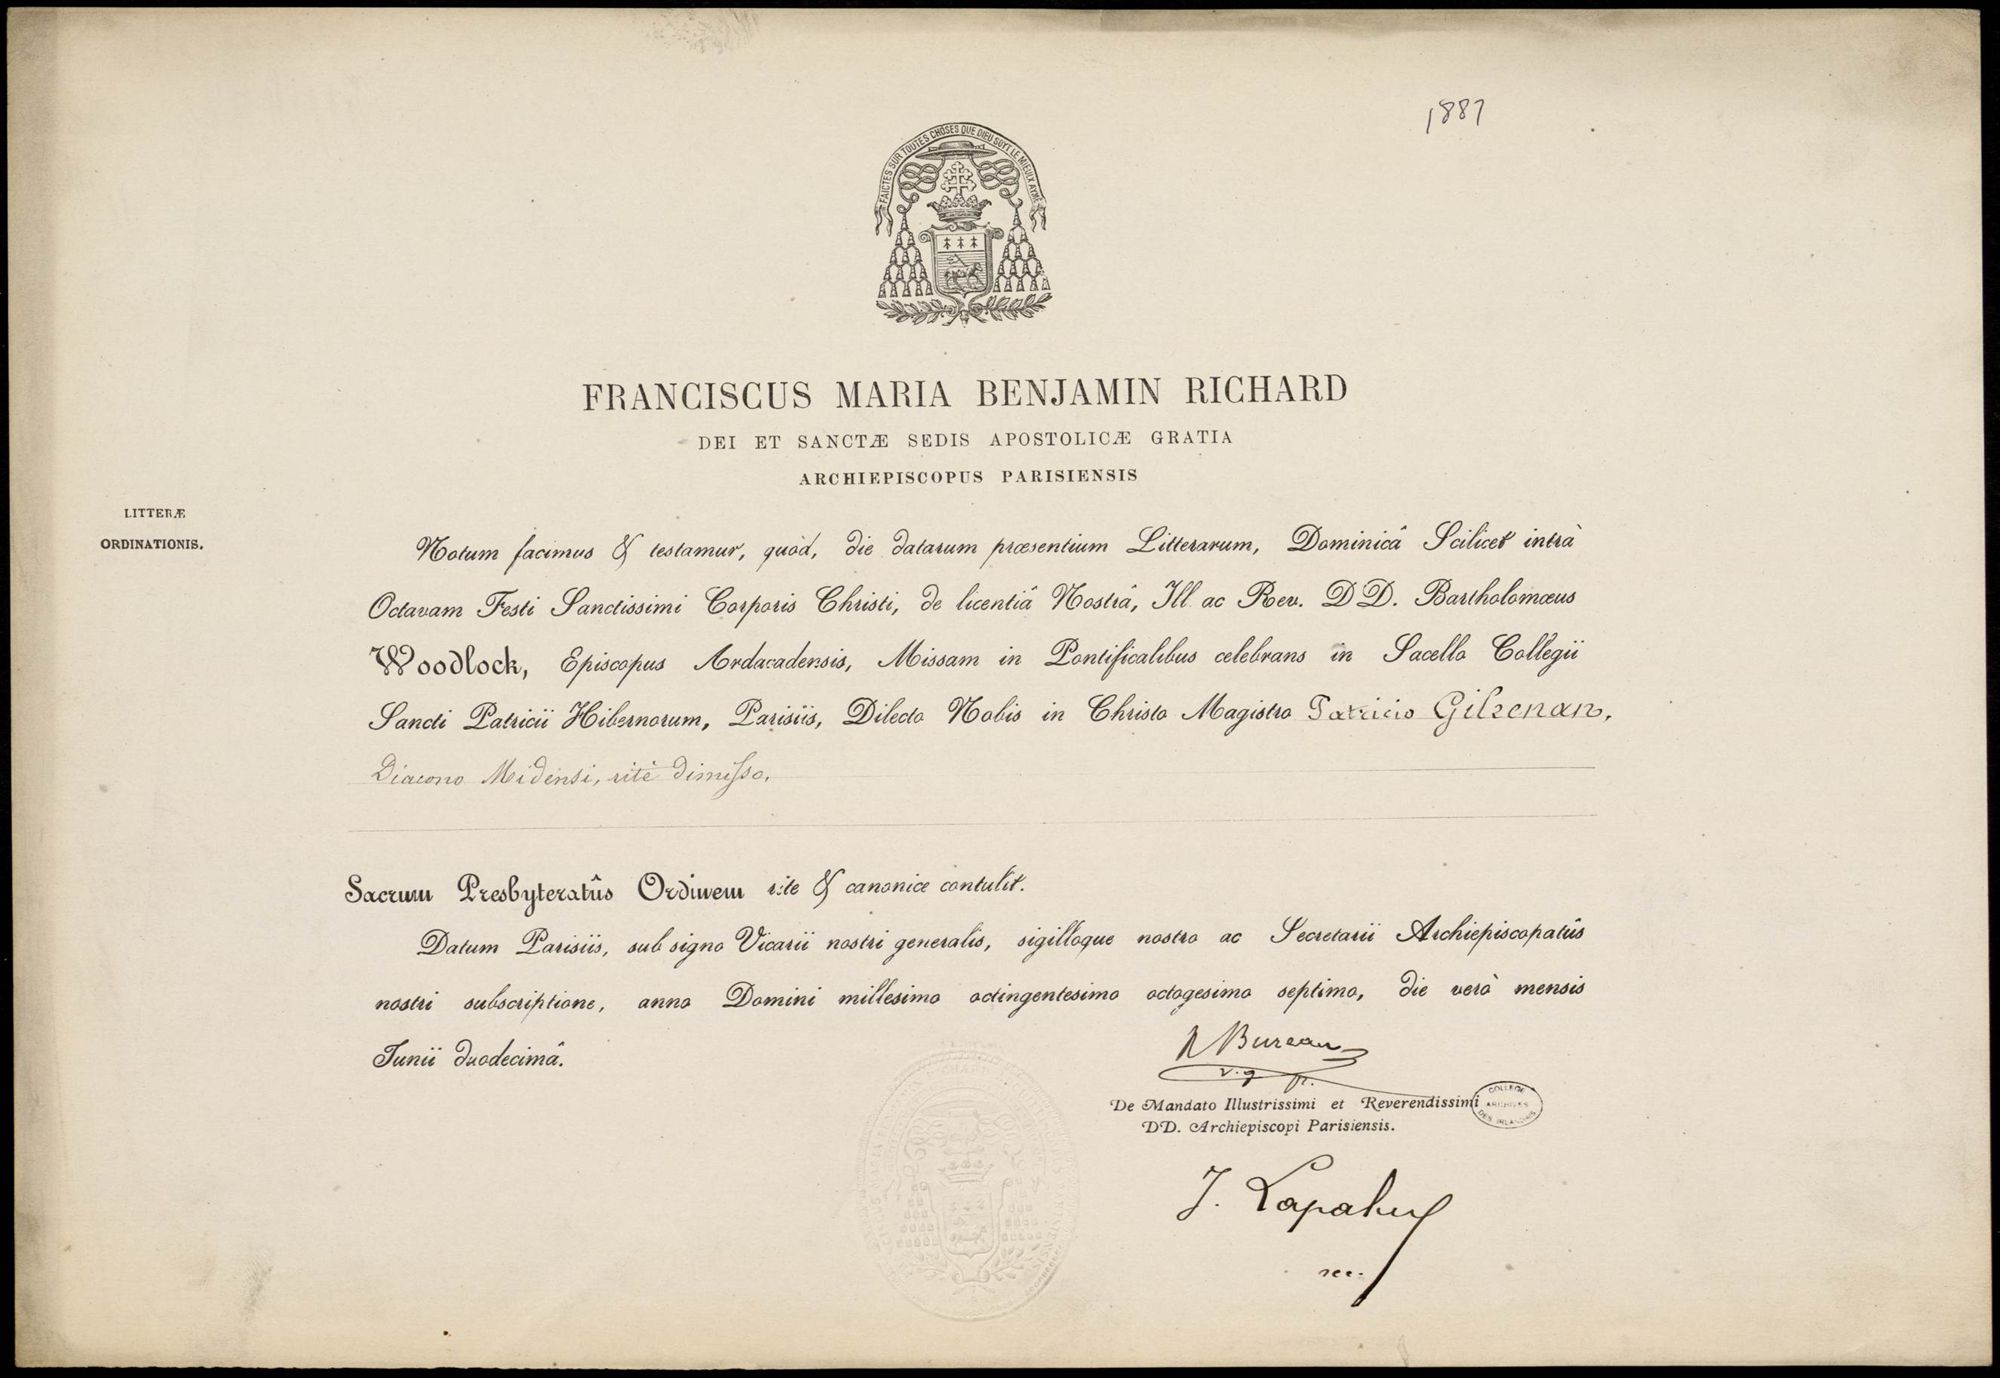 1887
FAICTES SUR TOUTES CHOSES QUE DIEU SOYT LE MIEUX AYMÉ
FRANCISCUS MARIA BENJAMIN RICHARD
DEI ET SANCTÆ SEDIS APOSTOLICÆ GRATIA
ARCHIEPISCOPUS PARISIENSIS
LITTERÆ
ORDINATIONIS.
Notum facimus & testamur, quòd, die datarum præsentium Litterarum, Dominicâ Scilicet intrà
Octavam Festi Sanctissimi Corporis Christi, de licentiâ Nostrâ, Ill. ac Rev. DD. Bartholomæus
Woodlock, Episcopus Ardacadensis, Missam in Pontificalibus celebrans in Sacello Collegii
Sancti Patricii Hibernorum, Parisiis, Dilecto Nobis in Christo Magistro Patricio Gilsenan,
Diacono Midensi, ritè dimisso,
Sacrum Presbyteratûs Ordinem rite & canonice contulit.
Datum Parisiis, sub signo Vicarii nostri generalis, sigilloque nostro ac Secretarii Archiepiscopatûs
nostri subscriptione, anno Domini millesimo octingentesimo octogesimo septimo, die verò mensis
Junii duodecimâ.
Bureau
v. g.
De Mandato Illustrissimi et Reverendissimi
DD. Archiepiscopi Parisiensis.
COLLEGE
ARCHIVES
DES IRLANDAIS
J.
sec.